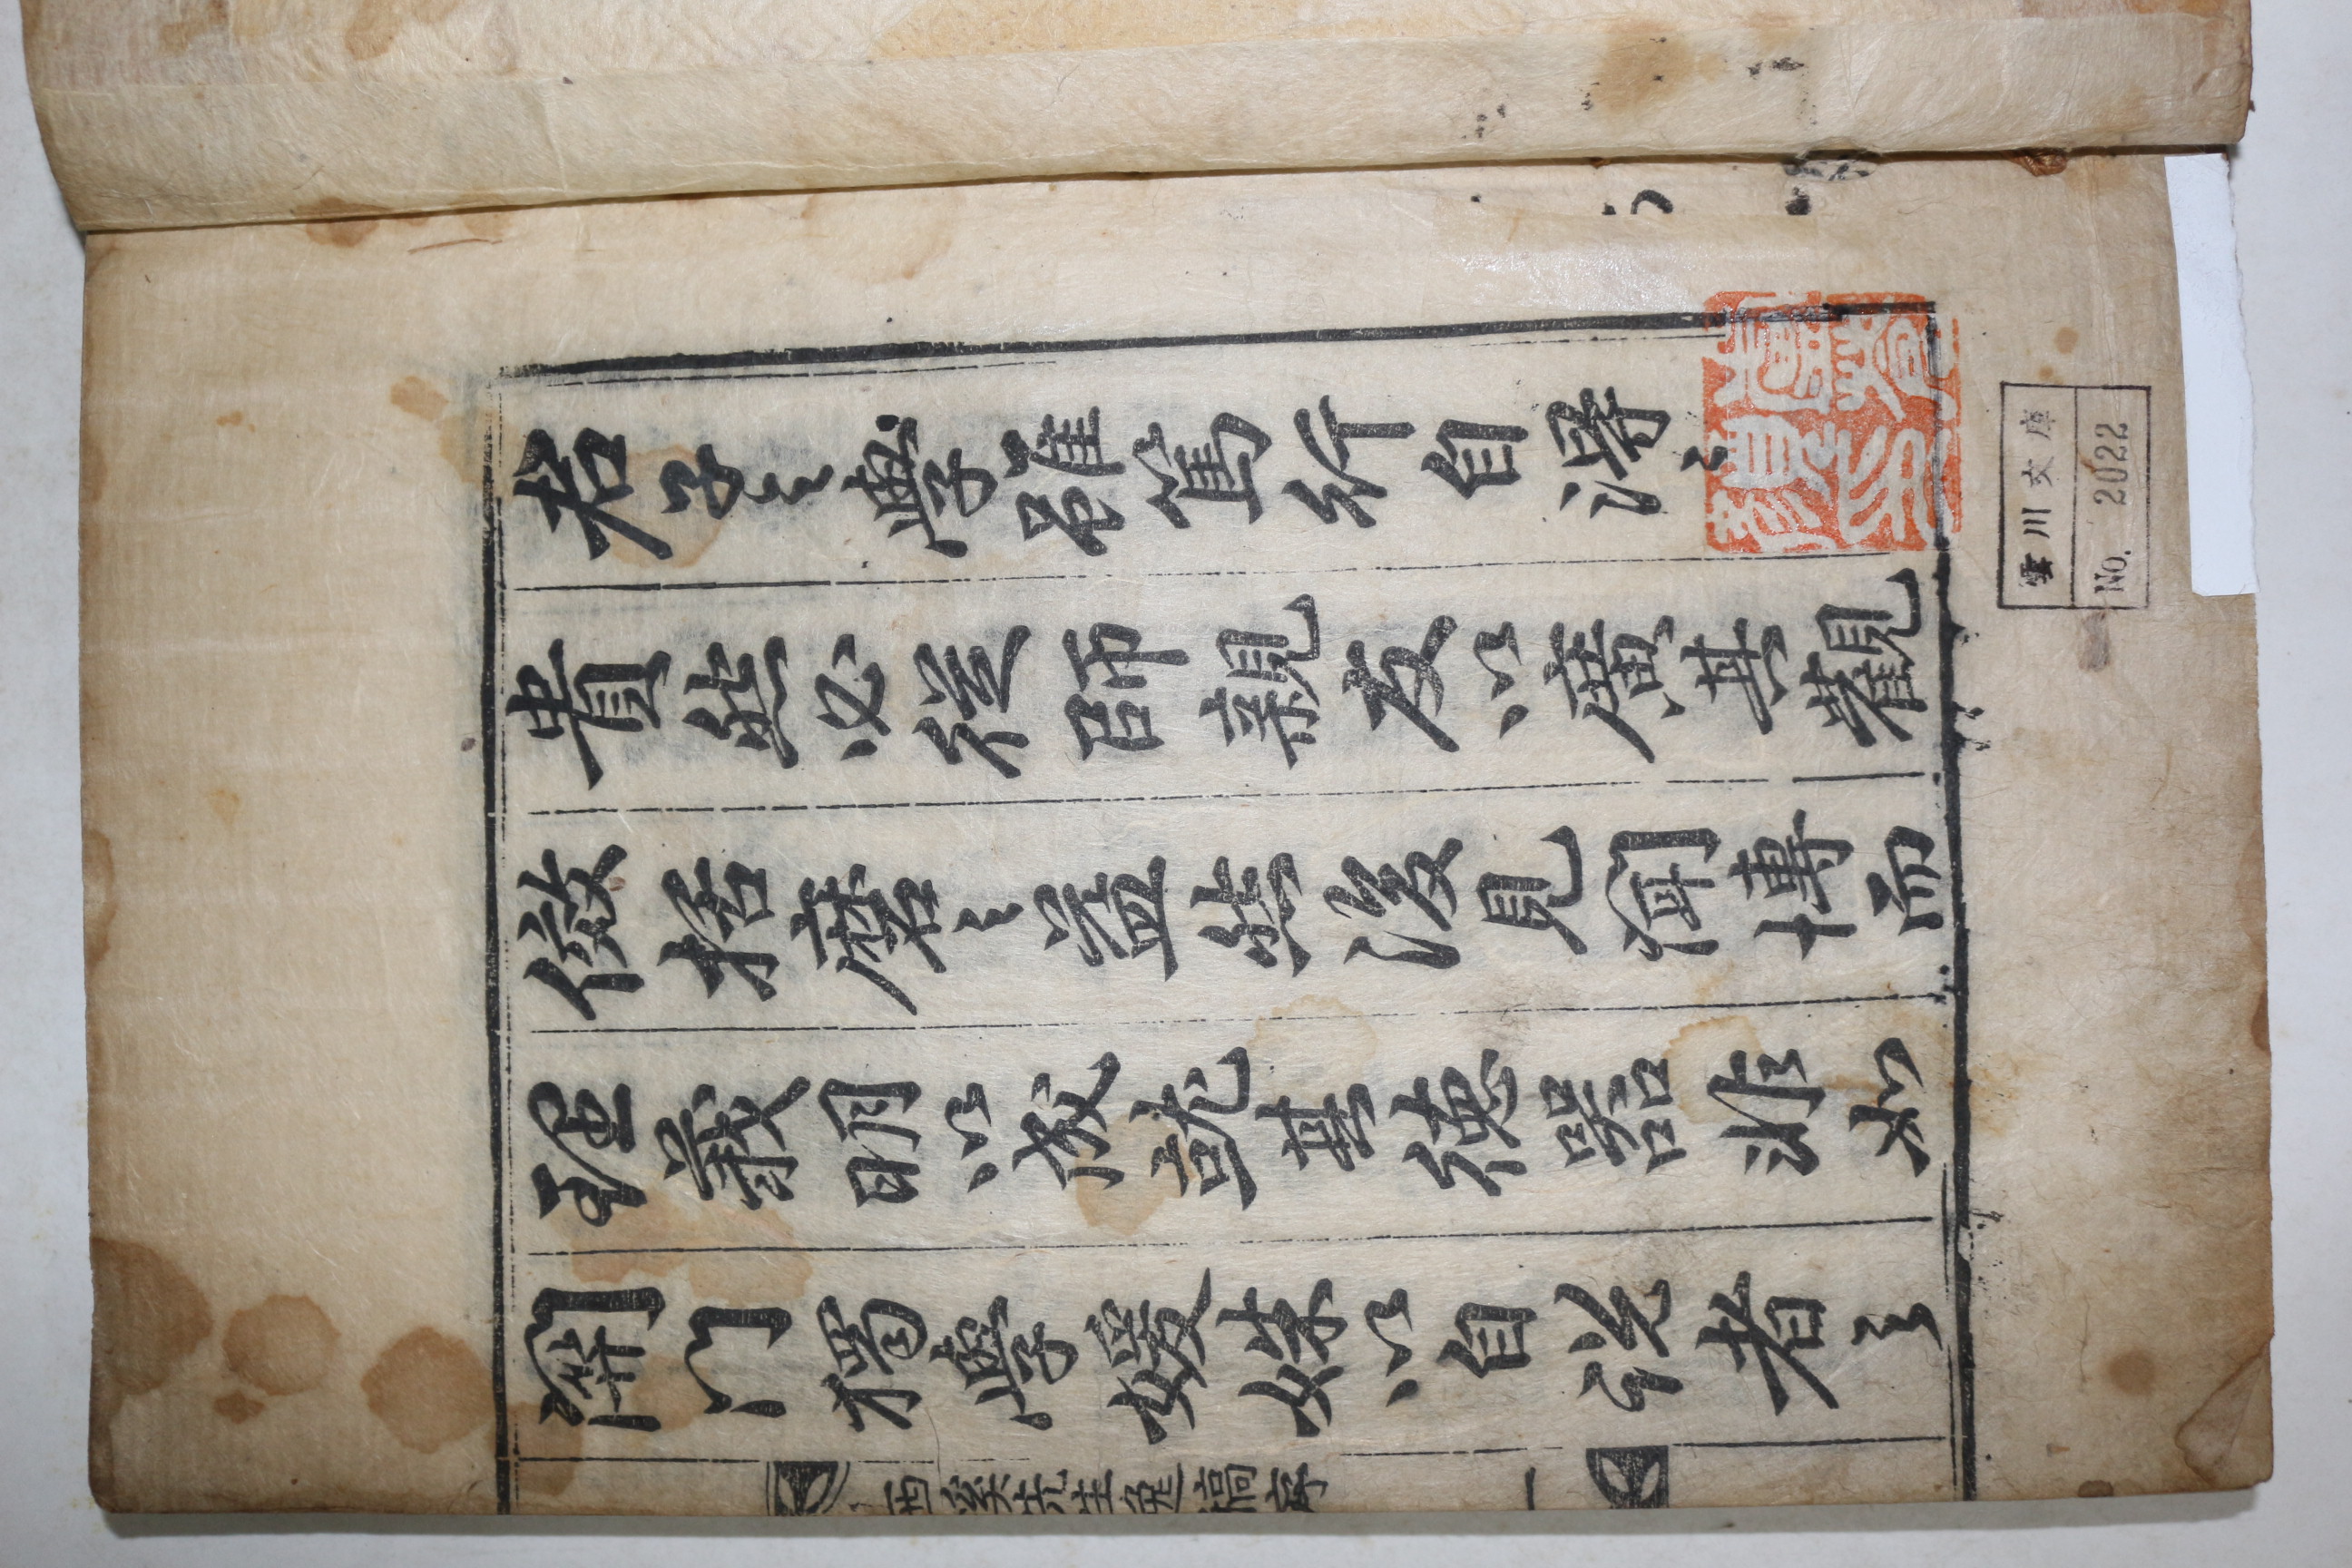 君子之學雖篤行自得之
貴然必從師親友以廣其觀
傚括磨之益然後見聞博而
理義明以成就其德器非如
關門獨學媛姝以自說者之
西溪先生逸稿序
一
雲川文庫
No. 2022